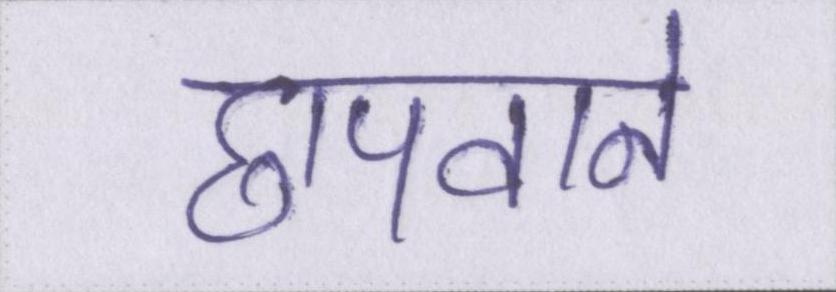 छापवाने